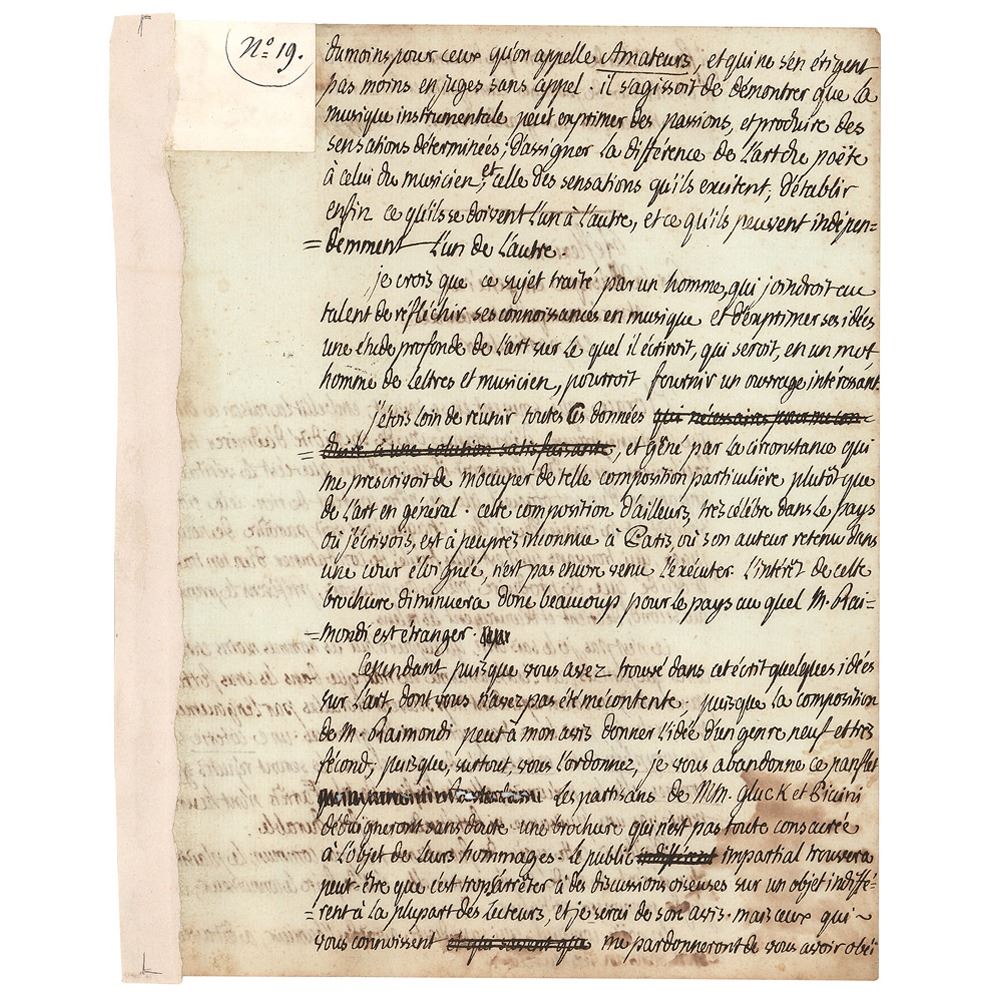 N.º 19.
du moins pour ceux qu'on appelle Amateurs, et qui ne s'en érigent
pas moins en juges sans appel. il s'agissoit de démontrer que la
musique instrumentale peut exprimer des passions, et produire des
sensations déterminées; d'assigner la différence de l'art du poëte
à celui du musicien, et celle des sensations qu'ils excitent; d'établir
enfin ce qu'ils se doivent l'un à l'autre, et ce qu'ils peuvent indépen=
=demment l'un de l'autre.
je crois que ce sujet traité par un homme, qui joindroit au
talent de réfléchir ses connoissances en musique et d'exprimer ses idées
une étude profonde de l'art sur le quel il écriroit, qui seroit, en un mot,
homme de Lettres et musicien, pourroit fournir un ouvrage intéressant.
j'étois loin de réunir toutes ces données qui nécessaires pour me con=
=duire à une solution satisfaisante, et gêné par la circonstance qui
me prescrivoit de m'occuper de telle composition particulière plutôt que
de l'art en général. cette composition d'ailleurs, très célèbre dans le pays
où j'écrivois, est à peu près inconnue à Paris, où son auteur retenu dans
une cour éloignée, n'est pas encore venu l'exécuter. L'intérêt de cette
brochure diminuera donc beaucoup pour le pays au quel M. Rai=
=mondi est étranger.
Cependant puisque vous avez trouvé dans cet écrit quelques idées
sur l'art, dont vous n'avez pas été mécontente. puisque la composition
de M. Raimondi peut à mon avis donner l'idée d'un genre neuf et très
fécond; puisque, surtout, vous l'ordonnez, je vous abandonne ce panflet
Les partisans de MM. Gluck et Picini
dédaigneront sans doute une brochure qui n'est pas toute consacrée
à l'objet de leurs hommages. le public indifférent impartial trouvera
peut-être que c'est trop s'arrêter à des discussions oiseuses sur un objet indiffé=
=rent à la plupart des Lecteurs, et je serai de son avis. mais ceux qui
vous connoissent et qui savent que me pardonneront de vous avoir obéi